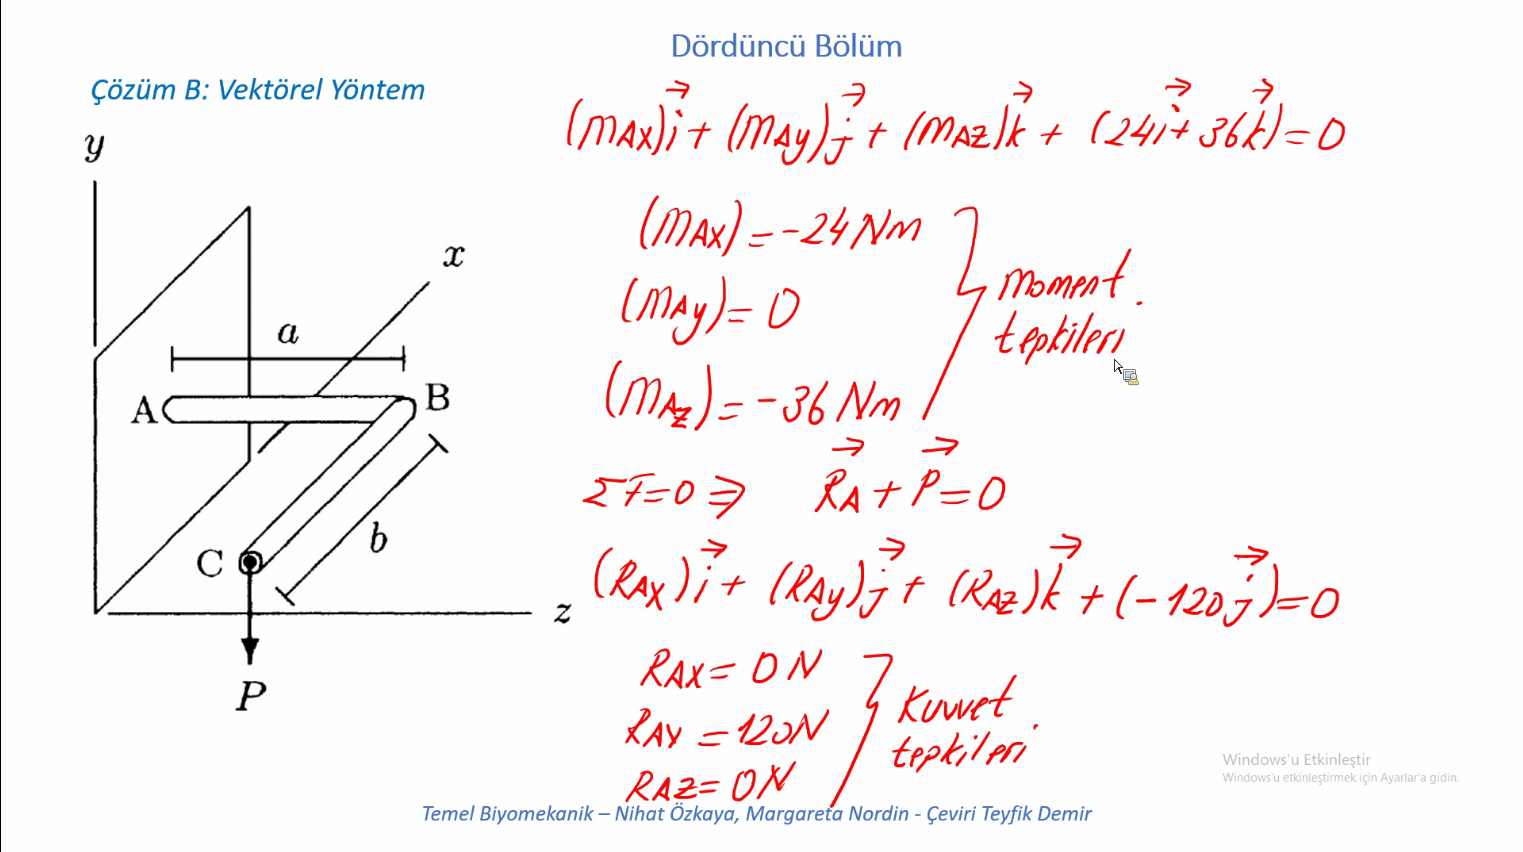 Dördüncü Bölüm
Çözüm B: Vektörel Yöntem
(MAX)i + (MAy)j + (MAZ)k + (24i + 36k) = 0
(MAX) = -24 Nm
(MAy) = 0
(MAZ) = -36 Nm
moment
tepkileri
ΣF=0 ⇒ RA + P = 0
(RAX)i + (RAy)j + (RAZ)k + (-120j) = 0
RAX = 0 N
RAY = 120N
RAZ = 0N
Kuvvet
tepkileri
y
x
a
A
B
b
C
z
P
Windows'u Etkinleştir
Windows'u etkinleştirmek için Ayarlar'a gidin.
Temel Biyomekanik – Nihat Özkaya, Margareta Nordin - Çeviri Teyfik Demir